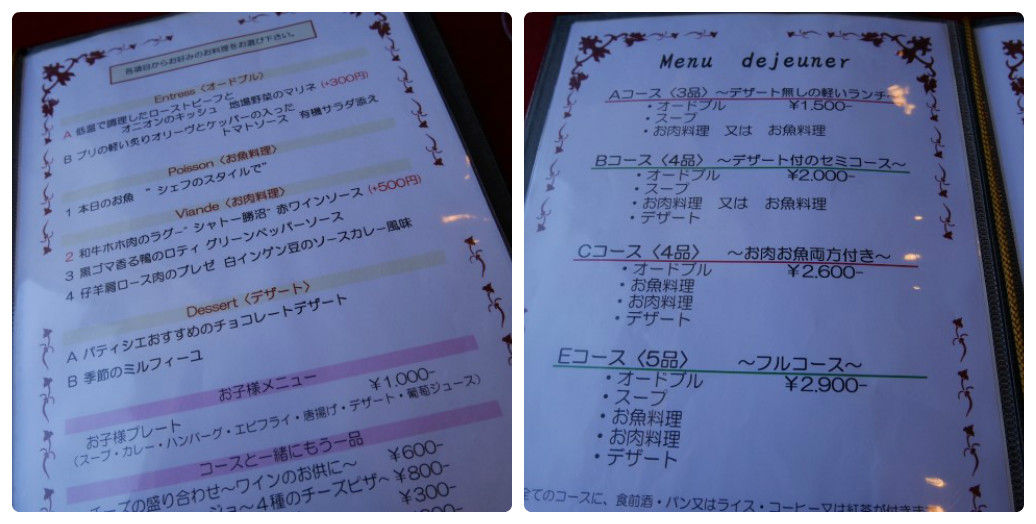 各項目からお好みのお料理をお選び下さい。
Entress〈オードブル〉
A 低温で調理したローストビーフと
オニオンのキッシュ 地場野菜のマリネ (+300円)
B ブリの軽い炙りオリーヴとケッパーの入った
トマトソース 有機サラダ添え
Poisson〈お魚料理〉
1 本日のお魚 "シェフのスタイルで"
Viande〈お肉料理〉
2 和牛ホホ肉のラグー"シャトー勝沼"赤ワインソース (+500円)
3 黒ゴマ香る鴨のロティ グリーンペッパーソース
4 仔羊肩ロース肉のブレゼ 白インゲン豆のソースカレー風味
Dessert〈デザート〉
A パティシエおすすめのチョコレートデザート
B 季節のミルフィーユ
お子様メニュー
お子様プレート ¥1,000-
(スープ・カレー・ハンバーグ・エビフライ・唐揚げ・デザート・葡萄ジュース)
コースと一緒にもう一品
ーズの盛り合わせ~ワインのお供に~ ¥600-
ジョ~4種のチーズピザ~ ¥800-
¥300-
Menu dejeuner
Aコース〈3品〉~デザート無しの軽いランチ
・オードブル ¥1,500-
・スープ
・お肉料理 又は お魚料理
Bコース〈4品〉 ~デザート付のセミコース~
・オードブル ¥2,000-
・スープ
・お肉料理 又は お魚料理
・デザート
Cコース〈4品〉 ~お肉お魚両方付き~
・オードブル ¥2,600-
・お魚料理
・お肉料理
・デザート
Eコース〈5品〉 ~フルコース~
・オードブル ¥2,900-
・スープ
・お魚料理
・お肉料理
・デザート
全てのコースに、食前酒・パン又はライス・コーヒー又は紅茶が付きま